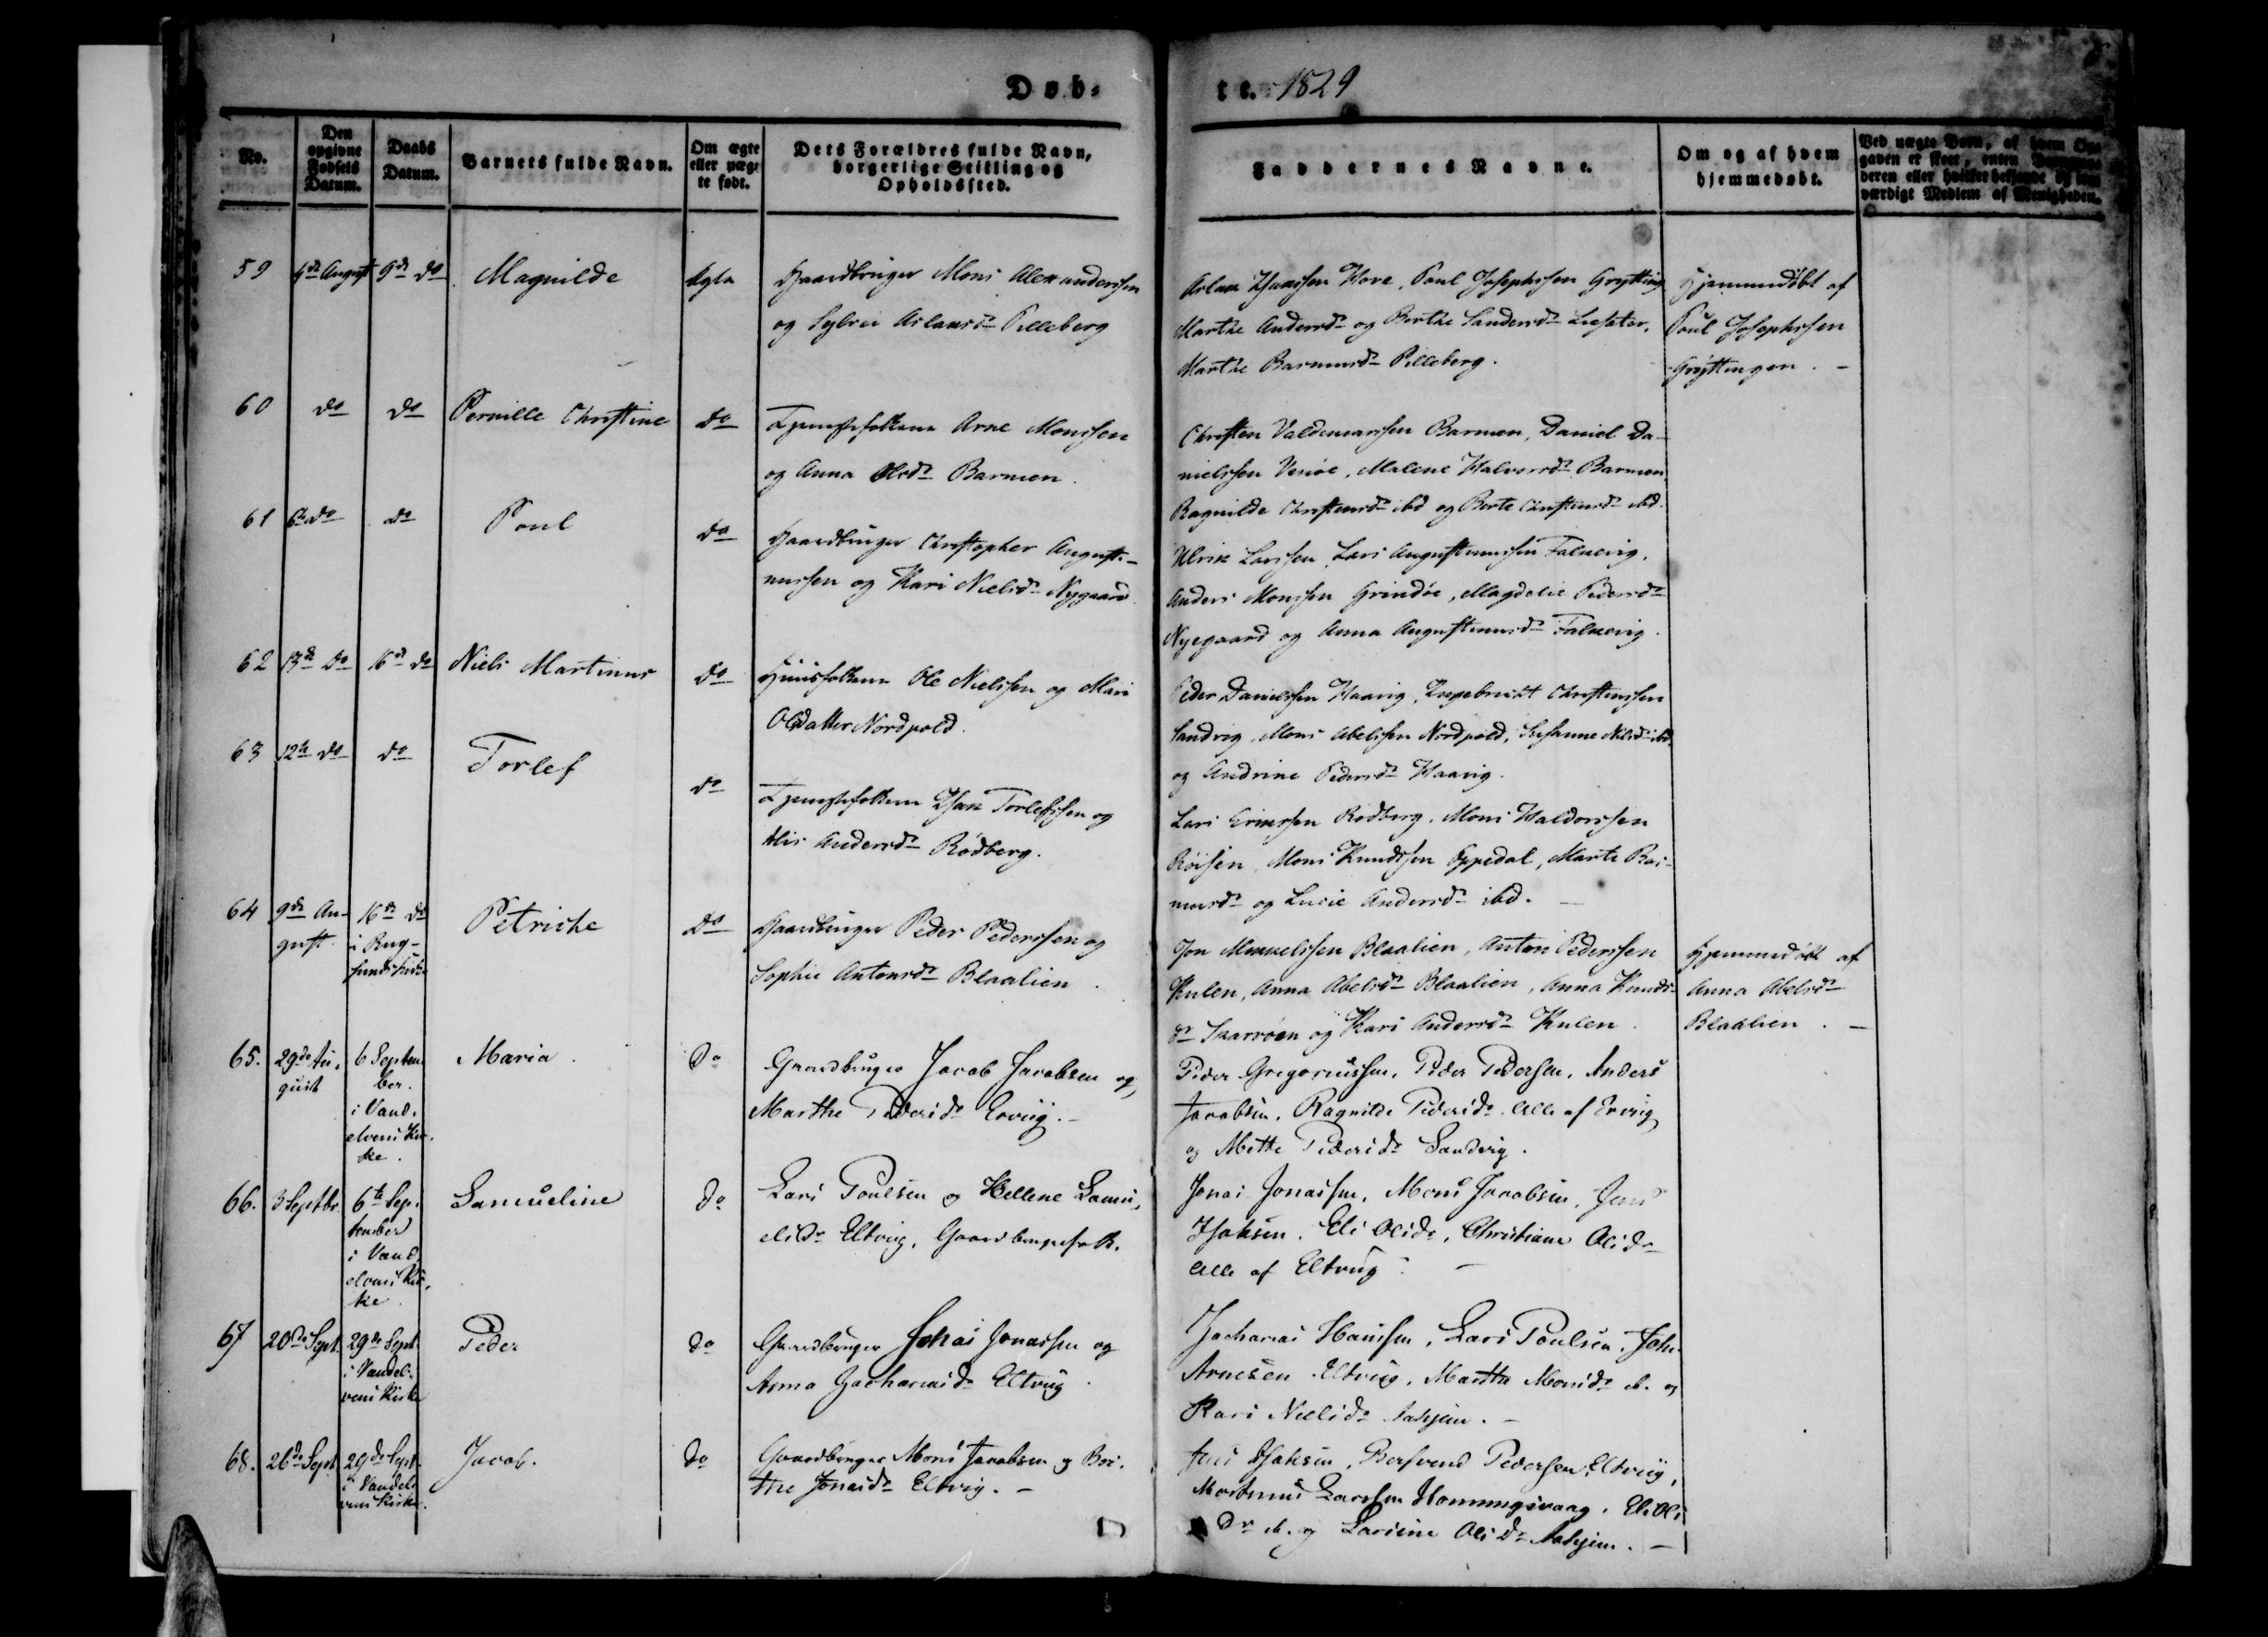 Døb-
te. 1829
No.
Den opgivne Fødsels Datum.
Daabs Datum.
Barnets fulde Navn.
Om ægte eller uægte født.
Dets Forældres fulde Navn, borgerlige Stilling og Opholdssted.
Faddernes Navne.
Om og af hvem hjemmedøbt.
59 August 9de do Magnilde Ægte Gaardbruger Mons Alexanderssen
og Sylvei Aslaksdr Pilleberg
Hove, Poul Josephssen Grytting
Marthe Andersdr og Berthe Sandersdr
Marthe Rasmusdr Pilleberg.
Hjemmedøbt af
Poul Josephssen
Grøttingen. -
60 do do Pernille Christine do Tjenestefolkene Arne Monssen
og Anna Olsdr Barmen.
Christen Valdemarssen Barmen, Daniel Da-
nielssen, Malene Halvorsdr Barmen
Ragnilde Christensdr ibd og Berte Christensdr ibd.
61 6te do do Poul do Gaardbruger Christopher Augusti-
nussen og Kari Nielsdr Nygaard
Ulrik Larssen, Lars Augustinussen Falkevig,
Anders Monssen Grindøe, Magdelie Pedersdr
Nygaard og Anna Augustinusdr Falkevig.
62 13de do 16de do Niels Martinus do Huusfolkene Ole Nielssen og Mari
Olsdatter Nordpold.
Peder Danielssen Haavig, Engebrecht Christenssen
Sandvig, Mons Abelssen Nordpold, Susanne Nilsdr ibd.
og Andrine Pedersdr Haavig.
63 12te do do Torlef do Tjenestefolkene Isak Torlefssen og
Andersdr Rødberg.
Lars Erikssen Rødberg, Mons Haldorssen
Røisen, Mons Knudssen Oppedal, Marte Ras-
musdr og Lucie Andersdr ibd. -
64 9de Au-
gust 16de do
i Rug-
sunds Kirke Petrikke do Gaardbruger Peder Pederssen og
Sophie Antonsdr Blaalien.
Jon Mikkelssen Blaalien, Anton Pederssen
Hulen, Anna Abelsdr Blaalien, Anna Knuds-
dr Skarrøen og Kari Andersdr Hulen.
Hjemmedøbt af
Anna Abelsdr
Blaalien. -
65. 29de Au-
gust 6 Septem
ber.
i Vand-
elvens Kir-
ke. Maria. do Gaardbruger Jacob Jacobsen og
Marthe Pedersdr Ervig. -
Peder Gregoriussen, Peder Pedersen, Anders
Jacobsen, Ragnilde Pedersdr, Alle af Ervig
og Mette Pedersdr Sandvig.
66. 3 Septbr. 6te Sep-
tember
i Vand
elvens Kir-
ke. Samueline do Lars Poulsen og Hellene Samu-
elsdr Eltvig, Gaardbrugerfolk.
Jonas Jonassen, Mons Jacobsen, Jens
Isaksen, Eli Olsdr, Christiane Olsdr
Alle af Eltvig. -
67 20de Sept. 29de Sept.
i Vandel-
vens Kirke Peder do Gaardbruger Jonas Jonassen og
Anna Zachariasdr Eltvig.
Zacharias Hanssen, Lars Poulsen, John
Arnesen Eltvig, Marthe Monsdr ib. og
Kari Nielsdr Aahjem. -
68. 26de Sept 29de Sept.
i Vandel-
vens Kirke. Jacob. do Gaardbruger Mons Jacobsen og Ber-
the Jonasdr Eltvig. -
Jens Isaksen, Bersvend Pedersen Eltvig,
Mortinus Larssen Honningsvaag, Eli Ols
dr ib. og Larsine Olsdr Aahjem. -